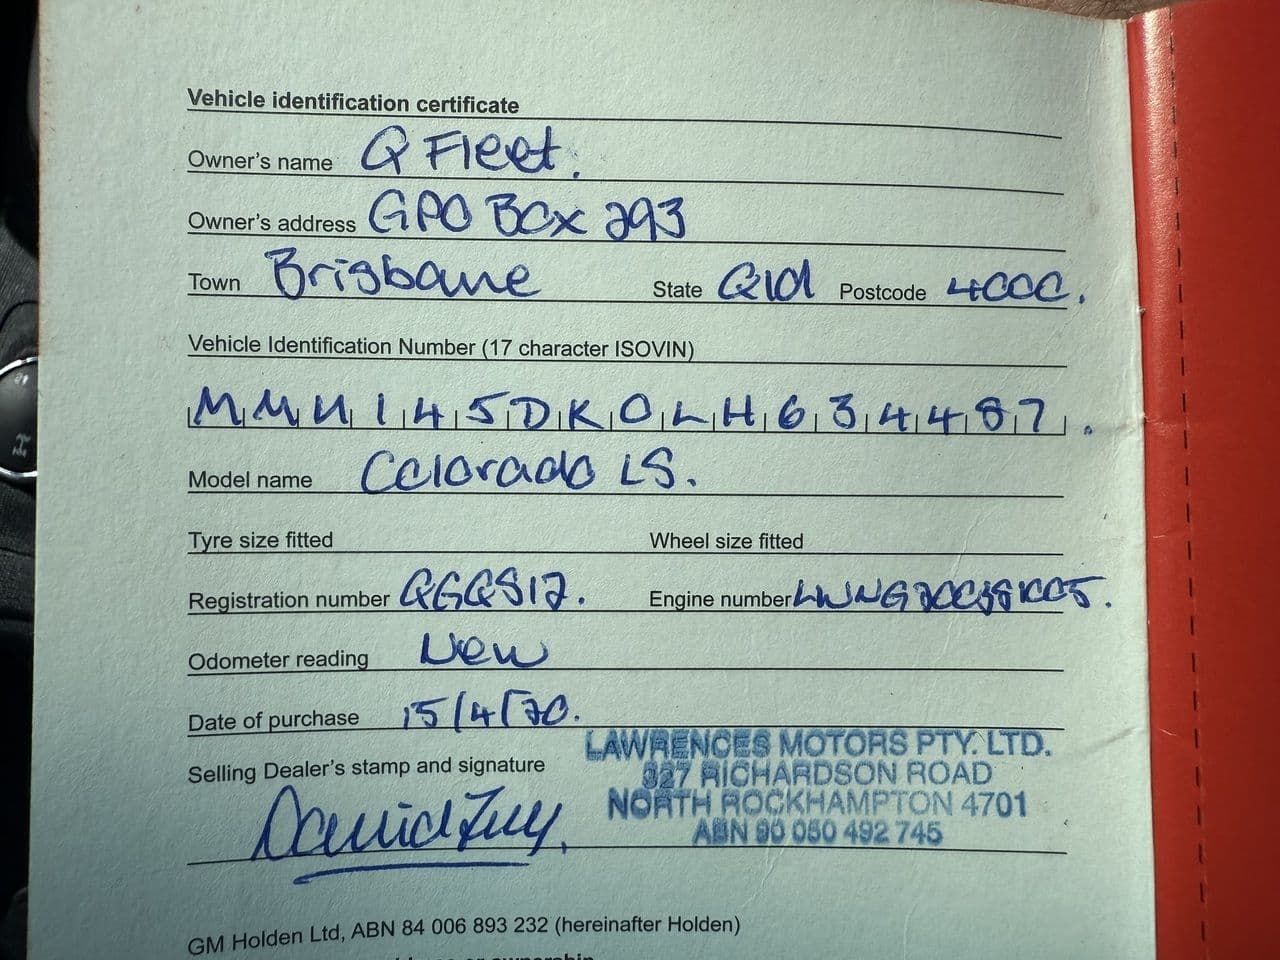 Vehicle identification certificate
Owner's name Q Fleet.
Owner's address GPO Box 293
Town Brisbane State Qld Postcode 4000.
Vehicle Identification Number (17 character ISOVIN)
MMU145DK0LH634487.
Model name Colorado LS.
Tyre size fitted Wheel size fitted
Registration number Engine number
Odometer reading New
Date of purchase 15/4/20.
Selling Dealer's stamp and signature
LAWRENCES MOTORS PTY. LTD.
327 RICHARDSON ROAD
NORTH ROCKHAMPTON 4701
ABN 90 050 492 745
GM Holden Ltd, ABN 84 006 893 232 (hereinafter Holden)